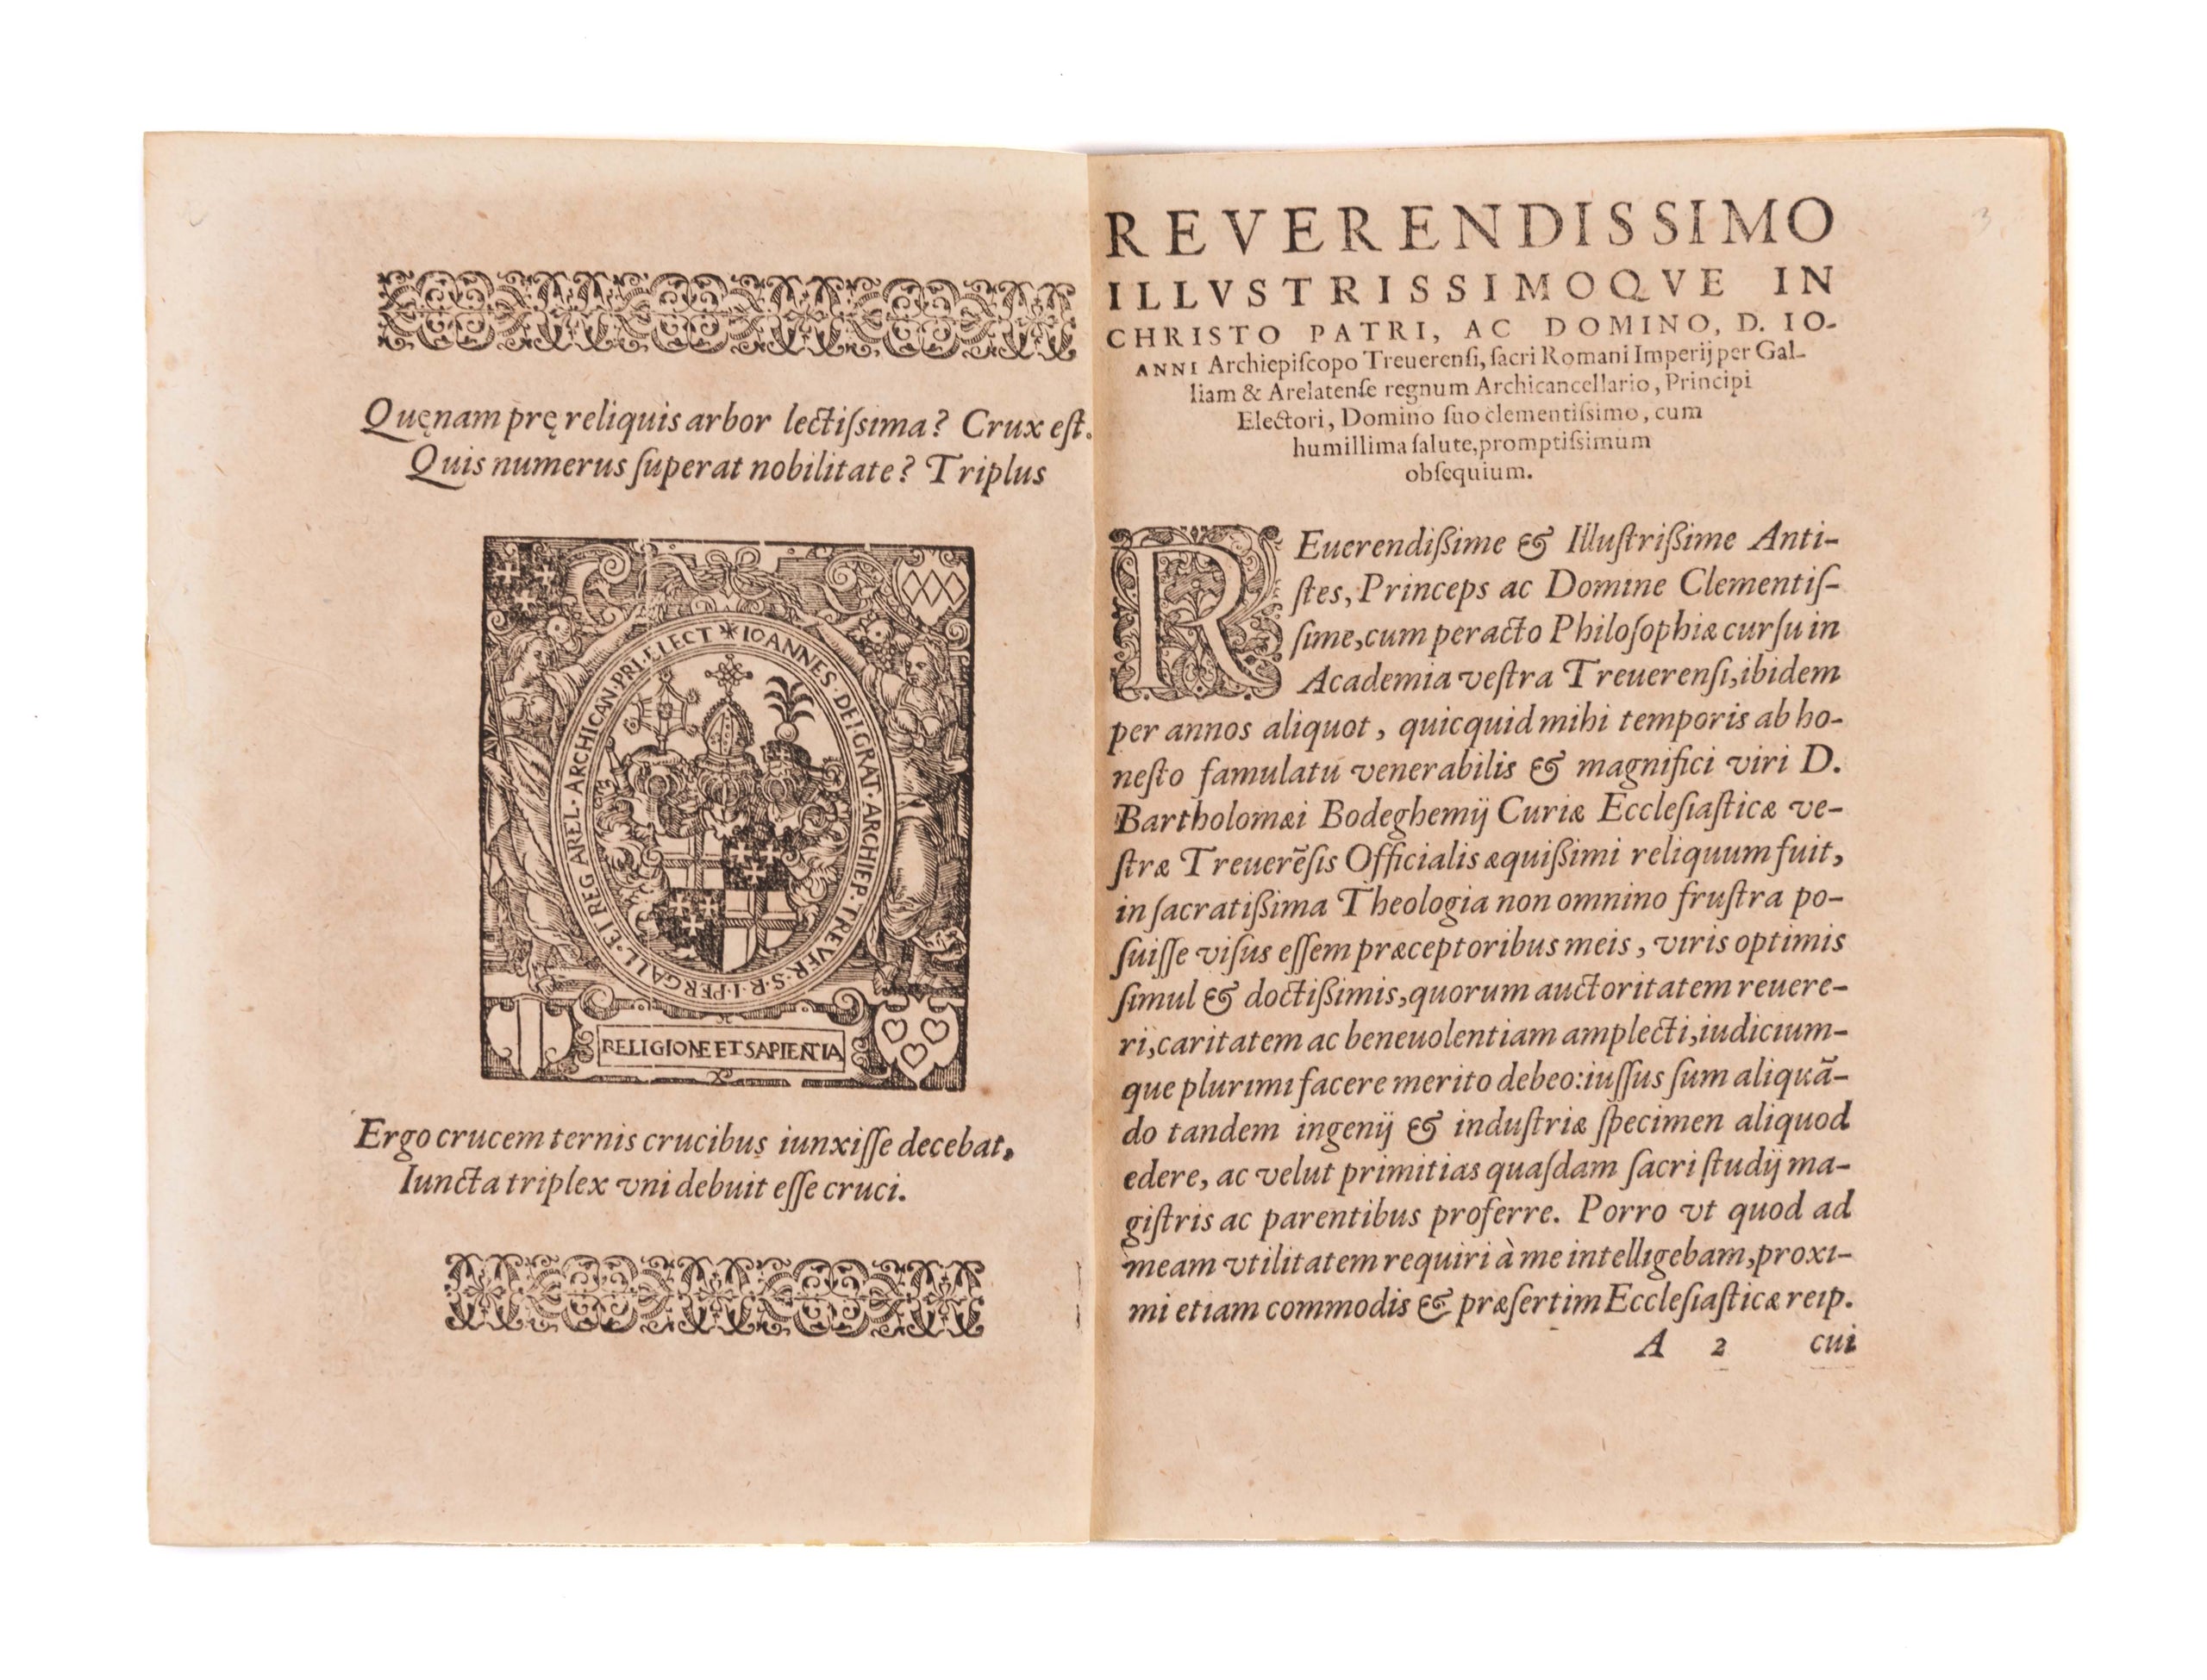 Quęnam prę reliquis arbor lectiſsima? Crux eſt.
Quis numerus ſuperat nobilitate? Triplus
IOANNES · DEI GRAT · ARCHIEP · TREVER · S · R · I · PER GALL · ET REG AREL · ARCHICAN · PRI · ELECT
RELIGIONE ET SAPIENTIA
Ergo crucem ternis crucibus iunxiſſe decebat,
Iuncta triplex vni debuit eſſe cruci.
REVERENDISSIMO
ILLVSTRISSIMOQVE IN
CHRISTO PATRI, AC DOMINO, D. IO-
ANNI Archiepiſcopo Treuerenſi, ſacri Romani Imperij per Gal-
liam & Arelatenſe regnum Archicancellario, Principi
Electori, Domino ſuo clementiſsimo, cum
humillima ſalute, promptiſsimum
obſequium.
REuerendißime & Illuſtrißime Anti-
ſtes, Princeps ac Domine Clementiſ-
ſime, cum peracto Philoſophiæ curſu in
Academia veſtra Treuerenſi, ibidem
per annos aliquot, quicquid mihi temporis ab ho-
neſto famulatu venerabilis & magnifici viri D.
Bartholomæi Bodeghemij Curiæ Eccleſiaſticæ ve-
ſtræ Treuerẽſis Officialis æquißimi reliquum fuit,
in ſacratißima Theologia non omnino fruſtra po-
ſuiſſe viſus eſſem præceptoribus meis, viris optimis
ſimul & doctißimis, quorum auctoritatem reuere-
ri, caritatem ac beneuolentiam amplecti, iudicium-
que plurimi facere merito debeo: iuſſus ſum aliquã-
do tandem ingenij & induſtriæ ſpecimen aliquod
edere, ac velut primitias quaſdam ſacri ſtudij ma-
giſtris ac parentibus proferre. Porro vt quod ad
meam vtilitatem requiri à me intelligebam, proxi-
mi etiam commodis & præſertim Eccleſiaſticæ reip.
A 2 cui
3